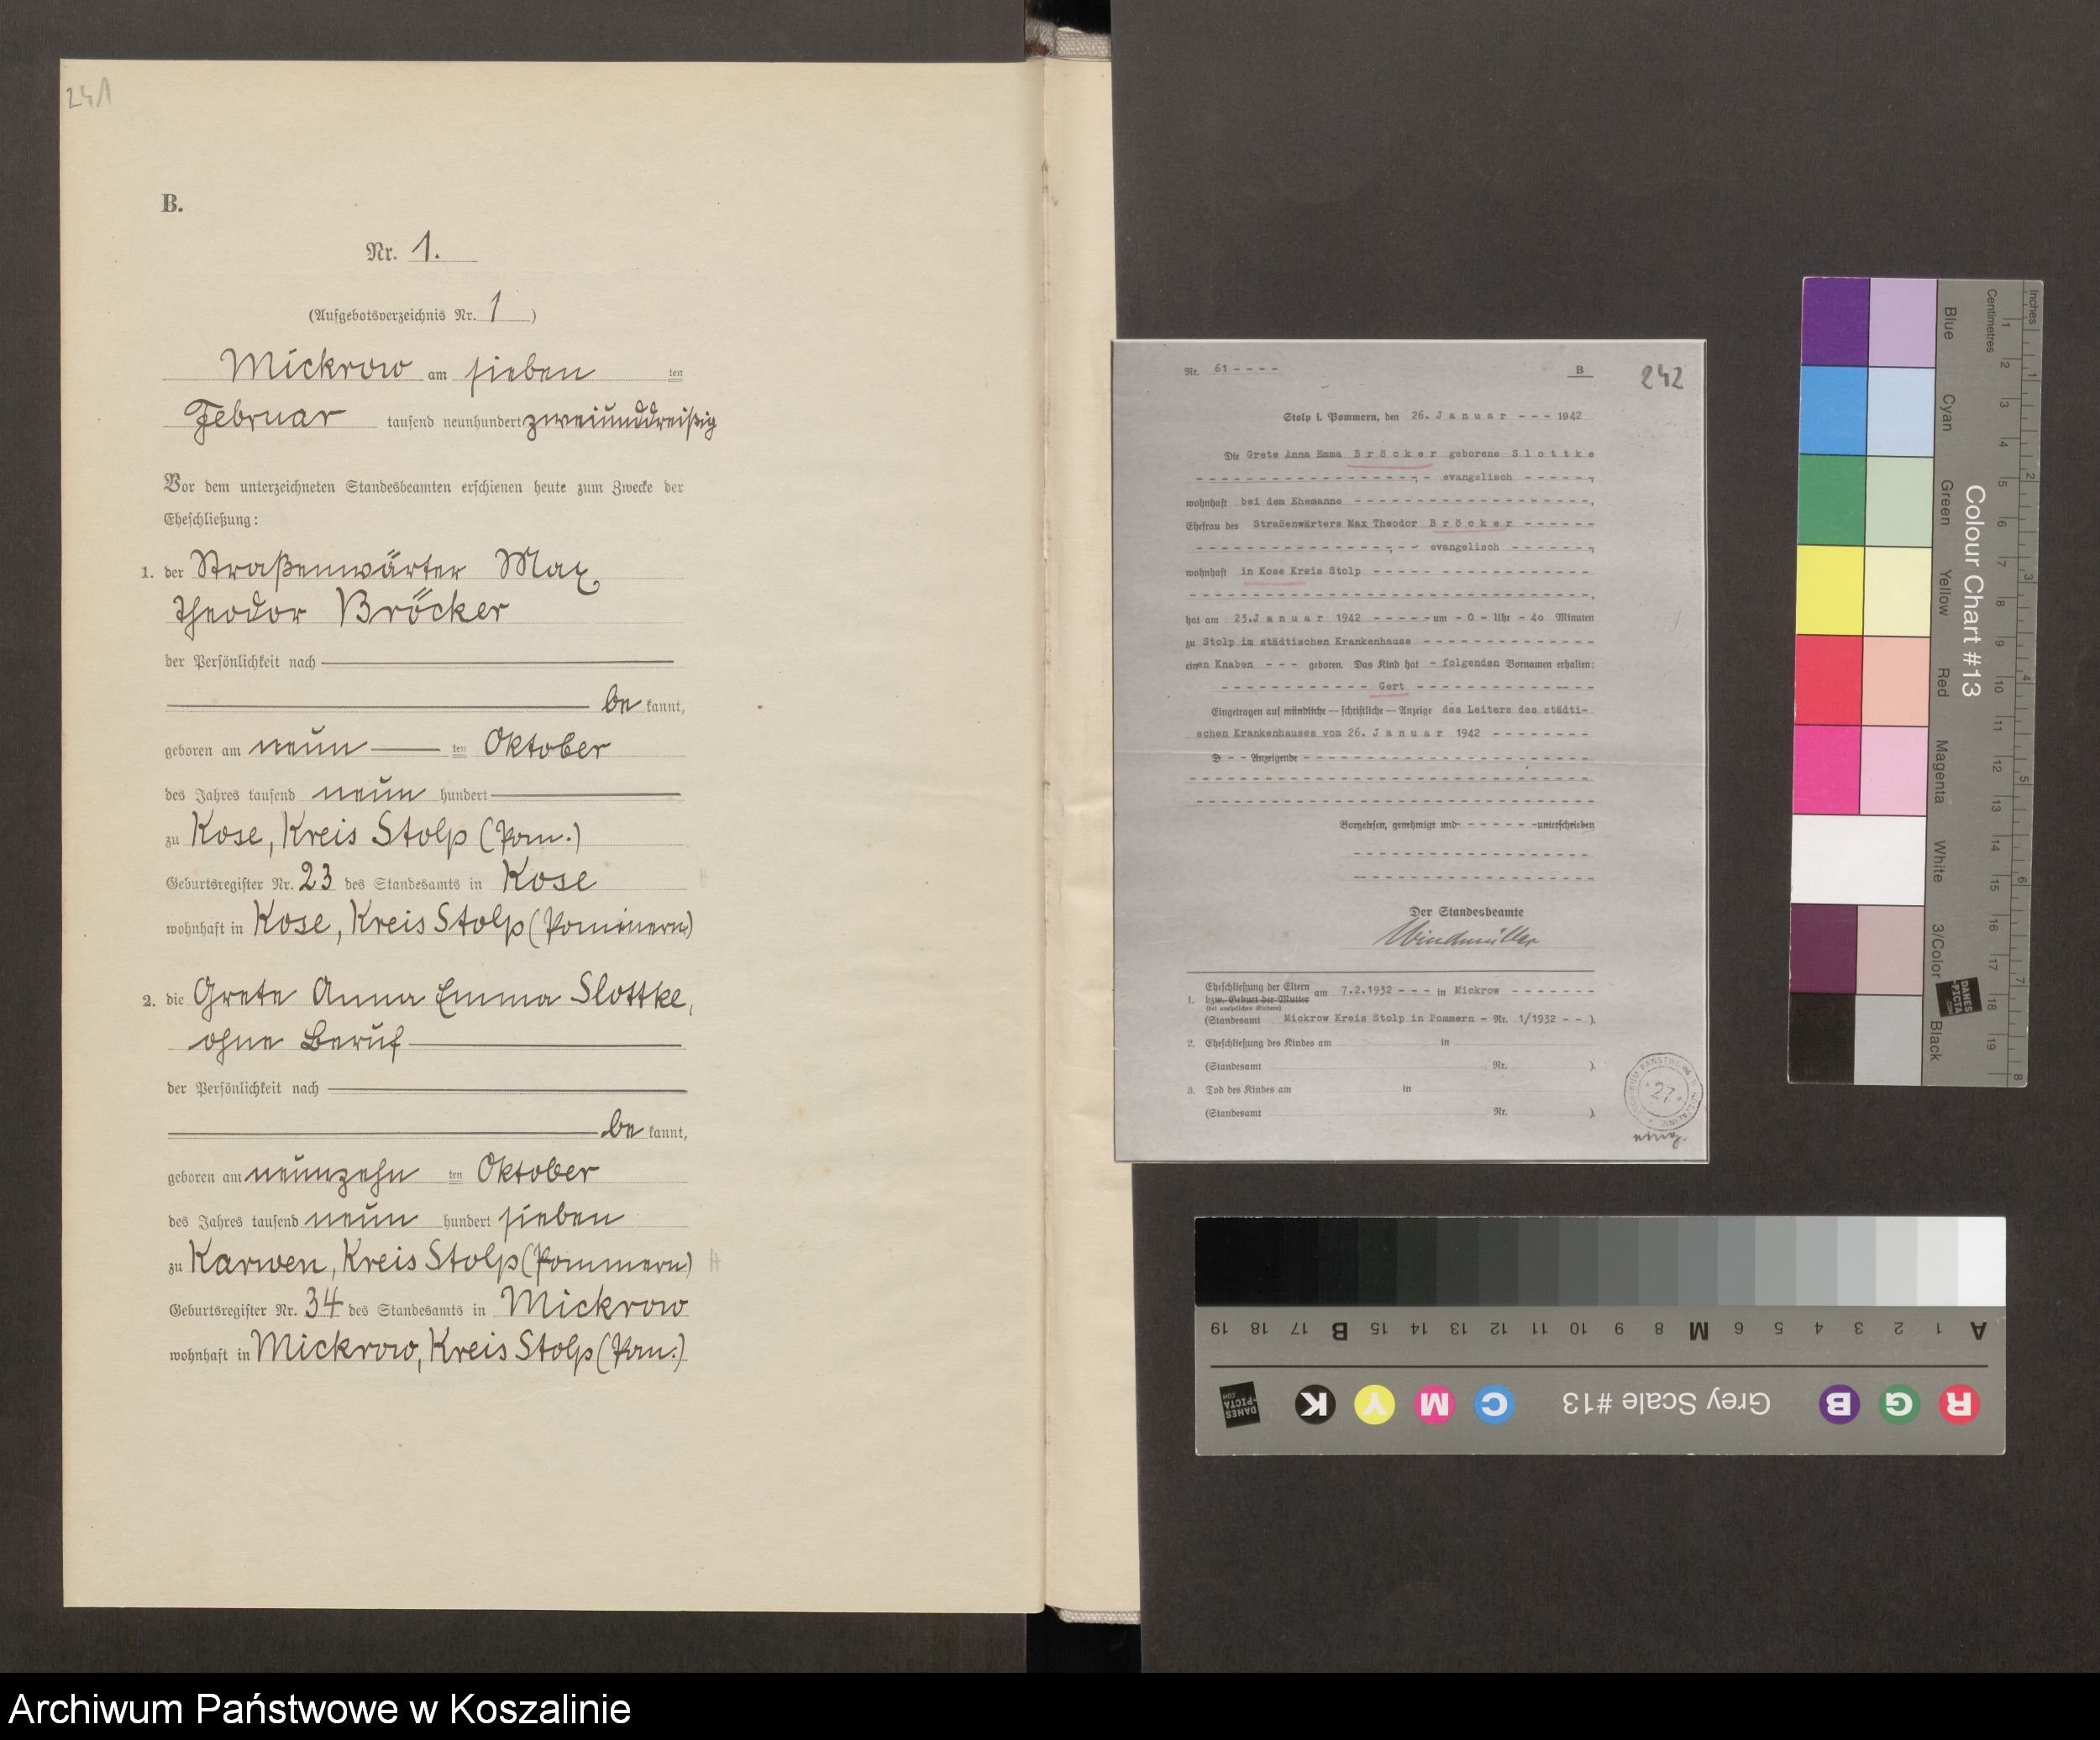 241
B.
Nr. 1.
(Aufgebotsverzeichnis Nr. 1)
Mickrow am sieben ten
Februar tausend neunhundert zweiunddreißig
Vor dem unterzeichneten Standesbeamten erschienen heute zum Zwecke der
Eheschließung:
1. der Straßenwärter Max
Theodor Bröcker
der Persönlichkeit nach
be kannt,
geboren am neun ten Oktober
des Jahres tausend neun hundert
zu Kose, Kreis Stolp (Pom.)
Geburtsregister Nr. 23 des Standesamts in Kose
wohnhaft in Kose, Kreis Stolp (Pommern)
2. die Grete Anna Emma Slottke,
ohne Beruf
der Persönlichkeit nach
be kannt,
geboren am neunzehn ten Oktober
des Jahres tausend neun hundert sieben
zu Karwen, Kreis Stolp (Pommern)
Geburtsregister Nr. 34 des Standesamts in Mickrow
wohnhaft in Mickrow, Kreis Stolp (Pom.)
242
Nr. 61 - - - - B
Stolp i. Pommern, den 26. Januar - - - 1942
Die Grete Anna Emma Bröcker geborene Slottke
- - - evangelisch - - -,
wohnhaft bei dem Ehemanne - - -,
Ehefrau des Straßenwärters Max Theodor Bröcker - - -
- - - evangelisch - - -,
wohnhaft in Kose Kreis Stolp - - -
- - -,
hat am 23. Januar 1942 - - - um - 0 - Uhr - 40 Minuten
zu Stolp im städtischen Krankenhause - - -
einen Knaben - - - geboren. Das Kind hat - folgenden Vornamen erhalten:
- - - Gert - - -
Eingetragen auf mündliche — schriftliche — Anzeige des Leiters des städti-
schen Krankenhauses vom 26. Januar 1942 - - -
D - - Anzeigende - - -
Vorgelesen, genehmigt und - - - unterschrieben
Der Standesbeamte
Windmüller
1. Eheschließung der Eltern
bzw. Geburt der Mutter
(bei unehelichen Kindern)
am 7.2.1932 - - - in Mickrow - - -
(Standesamt Mickrow Kreis Stolp in Pommern - Nr. 1/1932 - - ).
2. Eheschließung des Kindes am in
(Standesamt Nr. ).
3. Tod des Kindes am in
(Standesamt Nr. ).
27
Inches
Centimetres
1 2 3 4 5 6 7 8
1 2 3 4 5 6 7 8 9 10 11 12 13 14 15 16 17 18 19
Colour Chart #13
Blue
Cyan
Green
Yellow
Red
Magenta
White
3/Color
Black
DANES
-PICTA
.COM
A 1 2 3 4 5 6 M 8 9 10 11 12 13 14 15 B 17 18 19
R G B Grey Scale #13 C M Y K
DANES
-PICTA
.COM
Archiwum Państwowe w Koszalinie